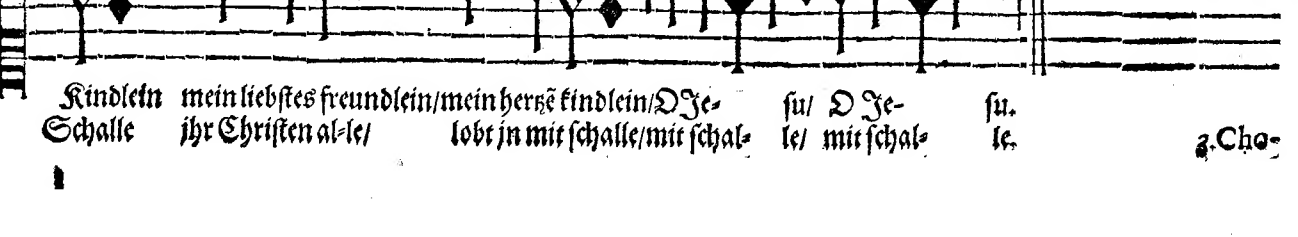 Kindlein mein liebstes freundlein/mein hertzẽ kindlein/O Je⸗ su/ O Je- su.
Schalle jhr Christen al⸗le/ lobt jn mit schalle/mit schal⸗ le/ mit schal⸗ le. 2.Cho⸗